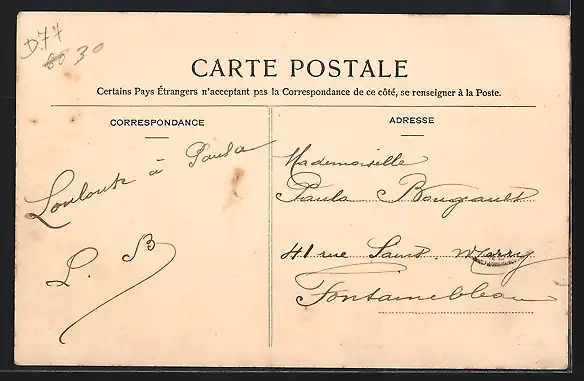 D.77
60 30
CARTE POSTALE
Certains Pays Étrangers n'acceptant pas la Correspondance de ce côté, se renseigner à la Poste.
CORRESPONDANCE
Loulout à Paula
L. B
ADRESSE
Mademoiselle
Paula Bougault
41 rue Saint Merry
Fontainebleau